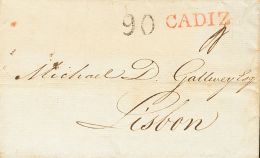 90 CADIZ
Michael D. Gallwey Esq
Lisbon